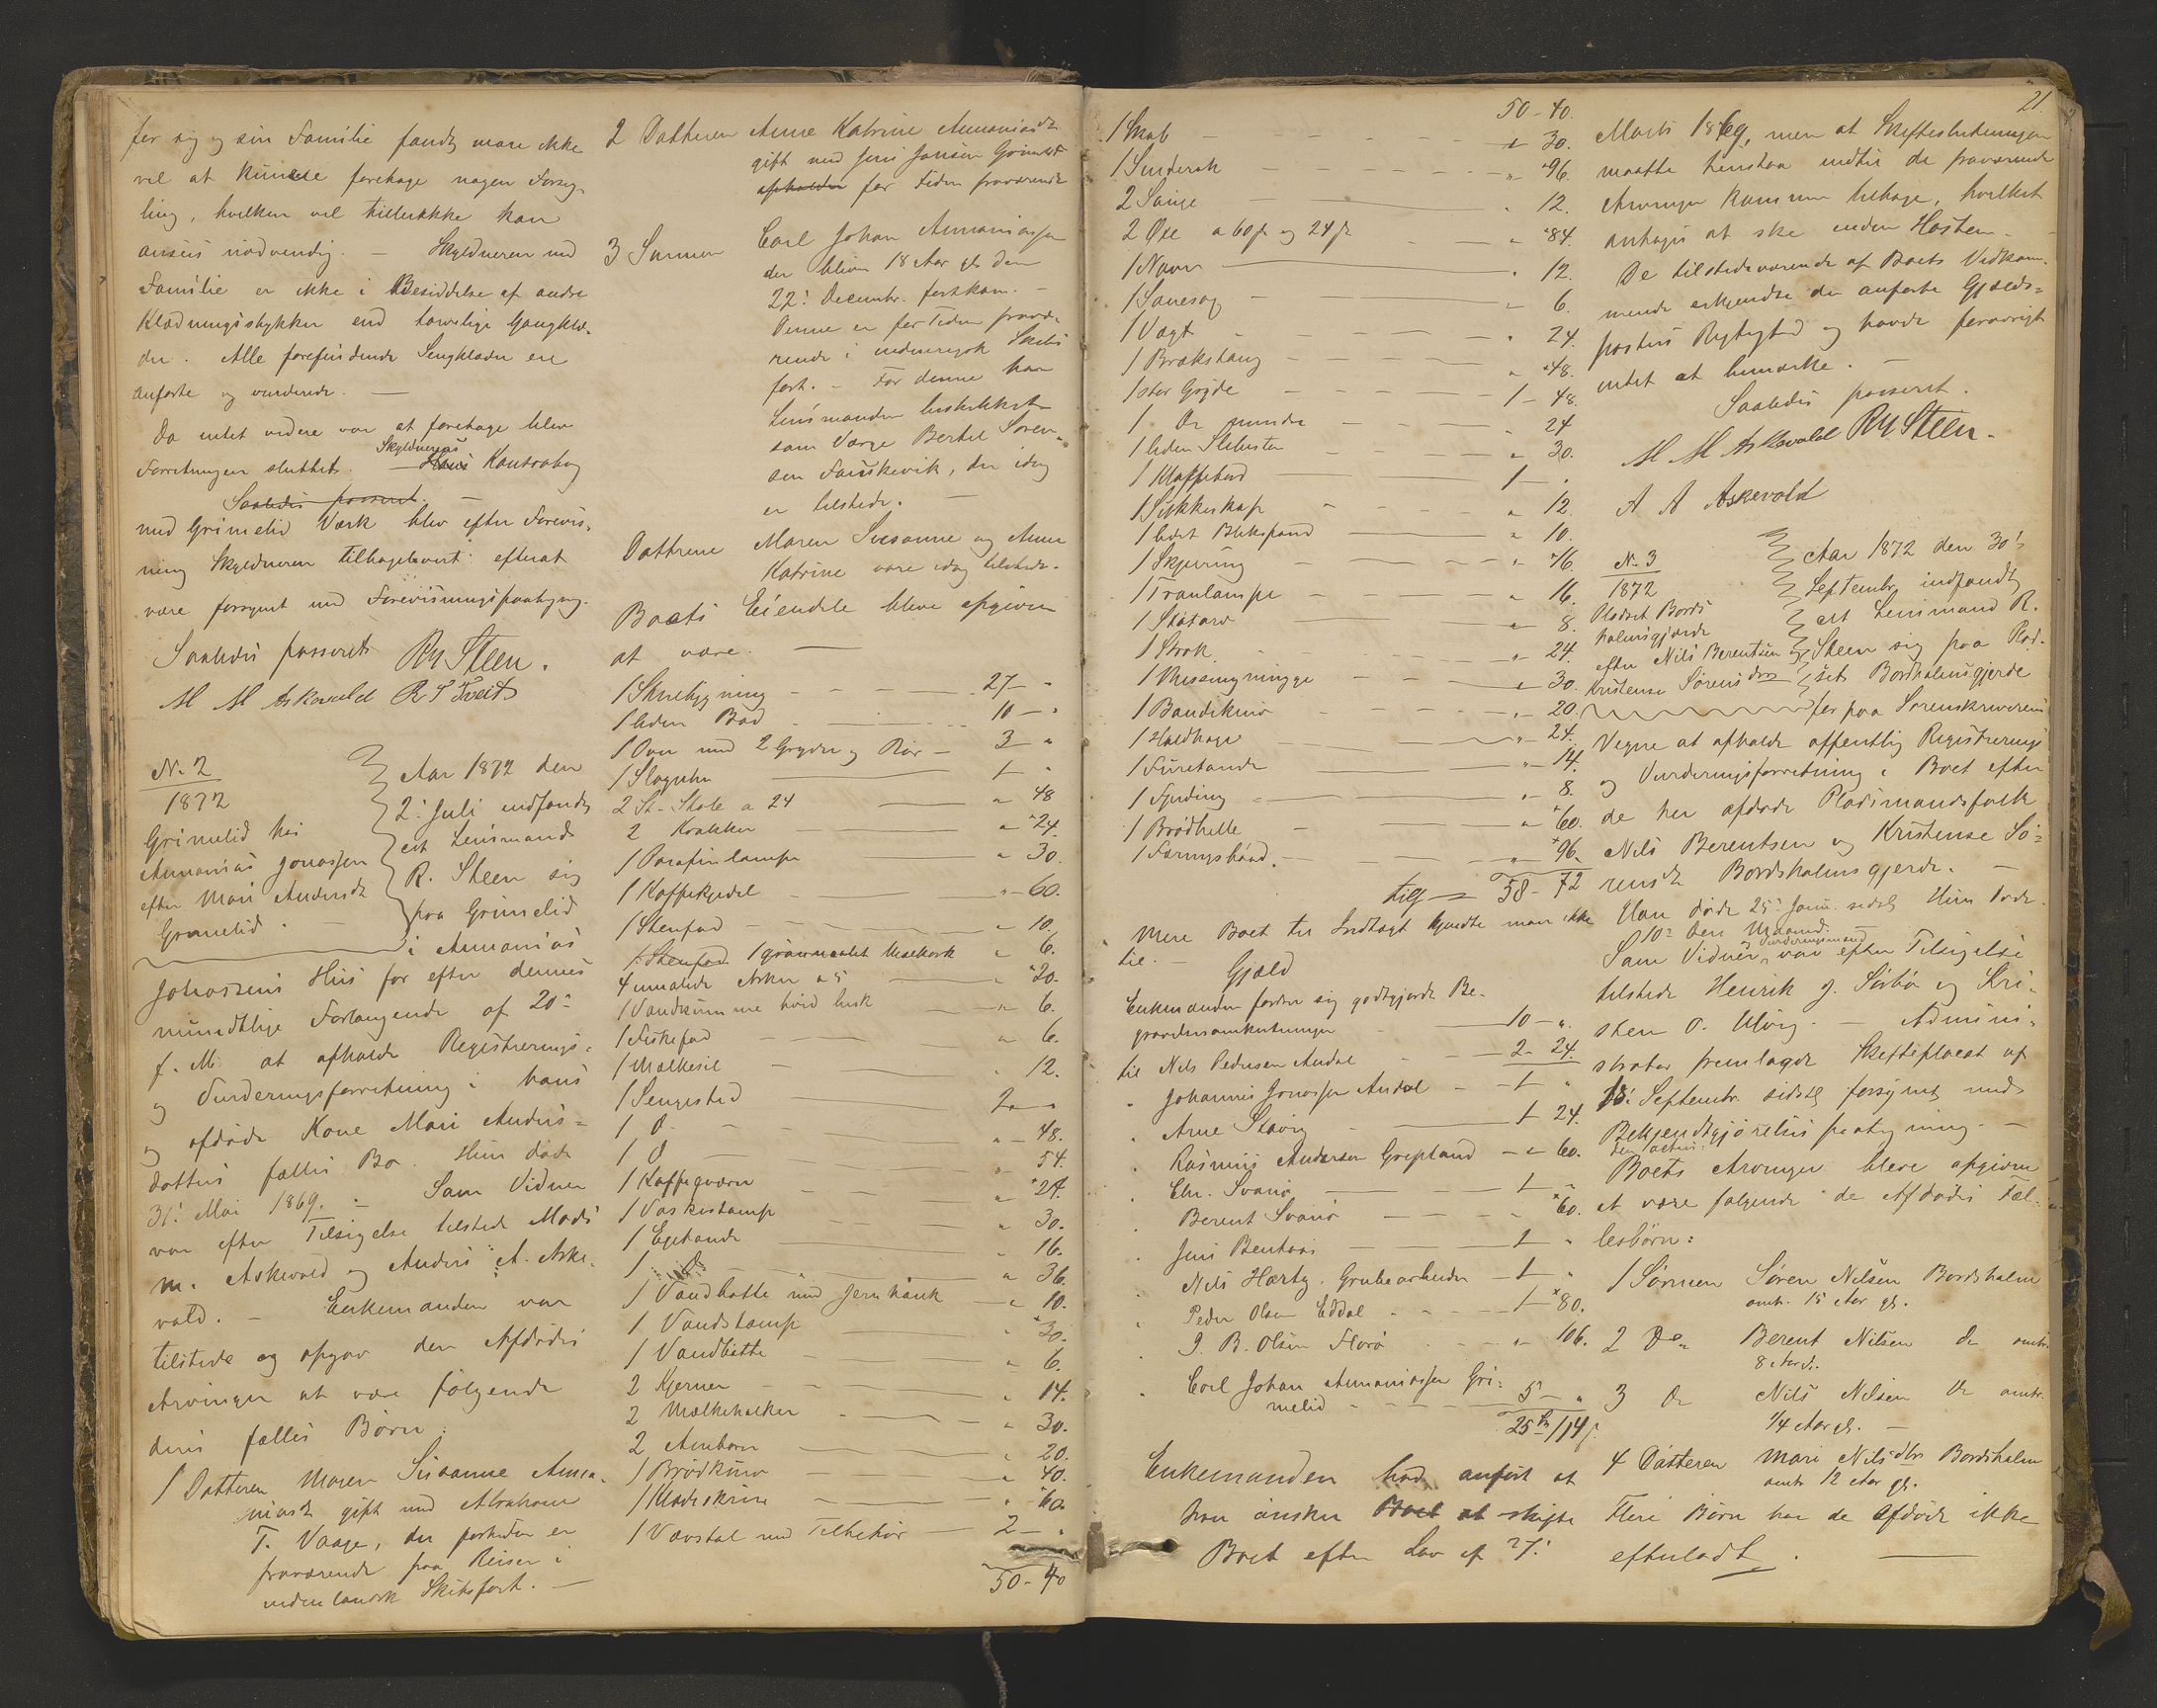 for sig og sin Familie fandtes mare ikke
vel at kunne foretage nogen Forseg-
ling, hvilken vel hellerikke kan
ansees nödvendig. — Skyldneren med
Familie er ikke i Besiddelse af andre
Klædningsstykker end tarvelige Gangklæ-
der. Alle forefindende Sengklæder ere
anførte og vurderede. —
Da intet videre var at foretage blev
Forretningen sluttet. — Skyldnerens Kontrabog
Saaledes passeret. —
med Grimelid Værk blev efter Forevis-
ning Skyldneren tilbageleveret efterat
være forsynet med Forevisningspaategning.
Saaledes passeret
RM Steen.
M M Askevold R T Tveit
No 2
1872
Grimelid hos
Annanias Jonassen
efter Mari Andersdtr
Grimelid.
Aar 1872 den
2. Juli indfandt
est Lensmand
R. Steen sig
paa Grimelid
i Annanias
Johassens Hus for efter dennes
mundtlige Forlangende af 20de
f. M. at afholde Registrerings-
og Vurderingsforretning i hans
og afdøde Kone Mari Anders-
datters fælles Bo. Hun døde
31. Mai 1869. — Som Vidner
var efter Tilsigelse tilstede Mads
M. Askevold og Anders A. Aske-
vold. — Enkemanden var
tilstede og opgav den Afdødes
Arvinger at være følgende
deres fælles Børn:
1 Datteren Maren Susanne Anna-
niasdtr gift med Abraham
T. Vaage, der fortiden er
fraværende paa Reiser i
indenlandsk Skibsfart. —
2 Datteren Anne Katrine Annaniasdtr
gift med Jens Jansen Grimelid
opholder for Tiden fraværende
3 Sønnen Carl Johan Annaniassen
der bliver 18 Aar gl. den
22. Decembr. førstkom. —
Denne er for Tiden fravæ-
rende i udenrigsk Skibs
fart. — For denne har
Lensmanden beskikket
som Værge Bertel Søren-
sen Fauskevik, der idag
er tilstede. —
Døttrene Maren Susanne og Anne
Katrine vare idag tilstede.
Boets Eiendele bleve opgivne
at være. —
1 Stuebygning 27 — "
1 liden Bod 10 — "
1 Ovn med 2 Gryder og Rør 3 "
1 Slaguhr 1 — "
2 St. Stole a 24 " 48
2 Krakker " 24.
1 Parafinlampe " 30.
1 Kaffekjedel " 60.
1 Stenfad " 10.
1 Stenfad 1 grønmalet Mælkork " 6.
4 umalede Asker a 5 " 20.
1 Vandkumme hvid bush " 6.
1 Fiskefad " 6.
1 Mælkesil " 12.
1 Sengested 2 "
1 D " 48.
1 D " 54.
1 Kaffeqværn " 24.
1 Vaskestamp " 30.
1 Egetande " 16.
1 Do " 36.
1 Vandbøtte med Jernhank " 10.
1 Vandstamp " 30.
1 Vandbøtte " 6.
2 Kjerner " 14.
2 Mælkeholker " 30.
2 Ambarn " 20.
1 Brødkurv " 40.
1 Klædeskrin " 60.
1 Vævstol med Tilbehør 2 — "
50 - 40
21.
50 - 40.
1 Skab " 30.
1 " 96.
2 Sauge " 12.
2 Øxe a 60 s. og 24 s. " 84.
1 Naver " 12.
1 Sauesag " 6.
1 Vægt " 24.
1 Brækstang " 48.
1 stor Gryde 1 - 48.
1 Do mindre 24
1 liden Slibesten " 30.
1 Klaffebord 1 — "
1 Sukkerkop " 12.
1 lidet Blikspand " 10.
1 Skjæring " 16.
1 Tranlampe " 16.
1 " 8.
1 Strok " 24.
1 " 30.
1 " 20.
1 " 24.
1 Furetande " 14.
1 Fjæding " 8.
1 Brødhelle " 60.
1 " 96.
tils 58 - 72
Mere Boet til Indtægt kjendte man ikke
til. —
Gjæld
Enkemanden fordrer sig godtgjorde Be-
gravelsesomkostninger 10 — "
til Nils Pedersen Andal 2 - 24.
" Johannes Jonassen Andal 1 "
" Arne Stavig 1 24.
" Rasmus Andersen Grepstand " 60.
" Chr. Svanø 1 "
" Berent Svanø " 60.
" Jens Benhaas 1 "
" Nils Harty. Grubearbeider 1 "
" Peder Olsen Eddal 1 80.
" J. B. Olsen Florø " 106.
" Carl Johan Annaniassen Gri-
melid 5 — "
25 /14
Enkemanden had anført at
han ønsker Boet at skifte
Boet efter Lov af 27.
Marts 1869, men at Skifteslutningen
maatte henstaa indtil de fraværende
Arvinger kommer tilbage, hvilket
antages at ske inden Høsten. —
De tilstedeværende af Boets Vedkom-
mende erkjendte de anførte Gjælds-
posters Rigtighed og havde forøvrigt
intet at bemærke. —
Saaledes passeret.
M M Askevold RM Steen.
A A Askevold
No 3
1872
Pladset Bords
holmsgjærde
efter Nils Berentsen og
Kristense Sørensdtr
Aar 1872 den 30.
Septembr indfandt
est Lensmand R.
Steen sig paa Plad-
set Bordholmsgjerde
for paa Sorenskriverens
Vegne at afholde offentlig Registrerings
og Vurderingsforretning i Boet efter
de her afdøde Pladsmandsfolk
Nils Berentsen og Kristense Sø-
rensdtr Bordsholmsgjerde. —
Han døde 25. Janr. sidstl. Hun døde
10de den Maaned. —
Som Vidner, Vurderingsmænd var efter Tilsigelse
tilstede Henrik J. Sørbø og Kri-
sten O. Ulvig. — Admini-
strator fremlagde Skifteplacat af
13. Septembr. sidstl. forsynet med
Bekjendtgjørelsespaategning. —
Boets Arvinger bleve opgivne
at være følgende de Afdødes Fæl-
lesbørn:
1 Sønnen Søren Nilsen Bordsholm
omtr. 15 Aar gl.
2 Do Berent Nilsen do omtr.
8 Aar gl.
3 Do Nils Nilsen do omtr.
1/4 Aar gl. —
4 Datteren Mari Nilsdtr Bordsholm
omtr 12 Aar gl.
Flere Børn har de Afdøde ikke
efterladt. —